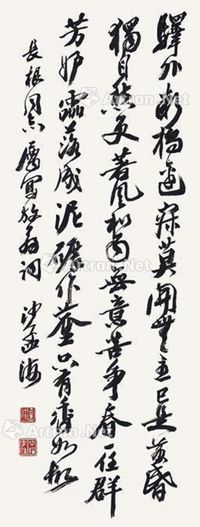 驛外断橋邊寂莫開無主已是黄昏
獨自愁更著風和雨無意苦争春一任群
芳妒零落成泥碾作塵只有香如故
長根同志屬寫放翁詞 沙孟海
Artron.Net